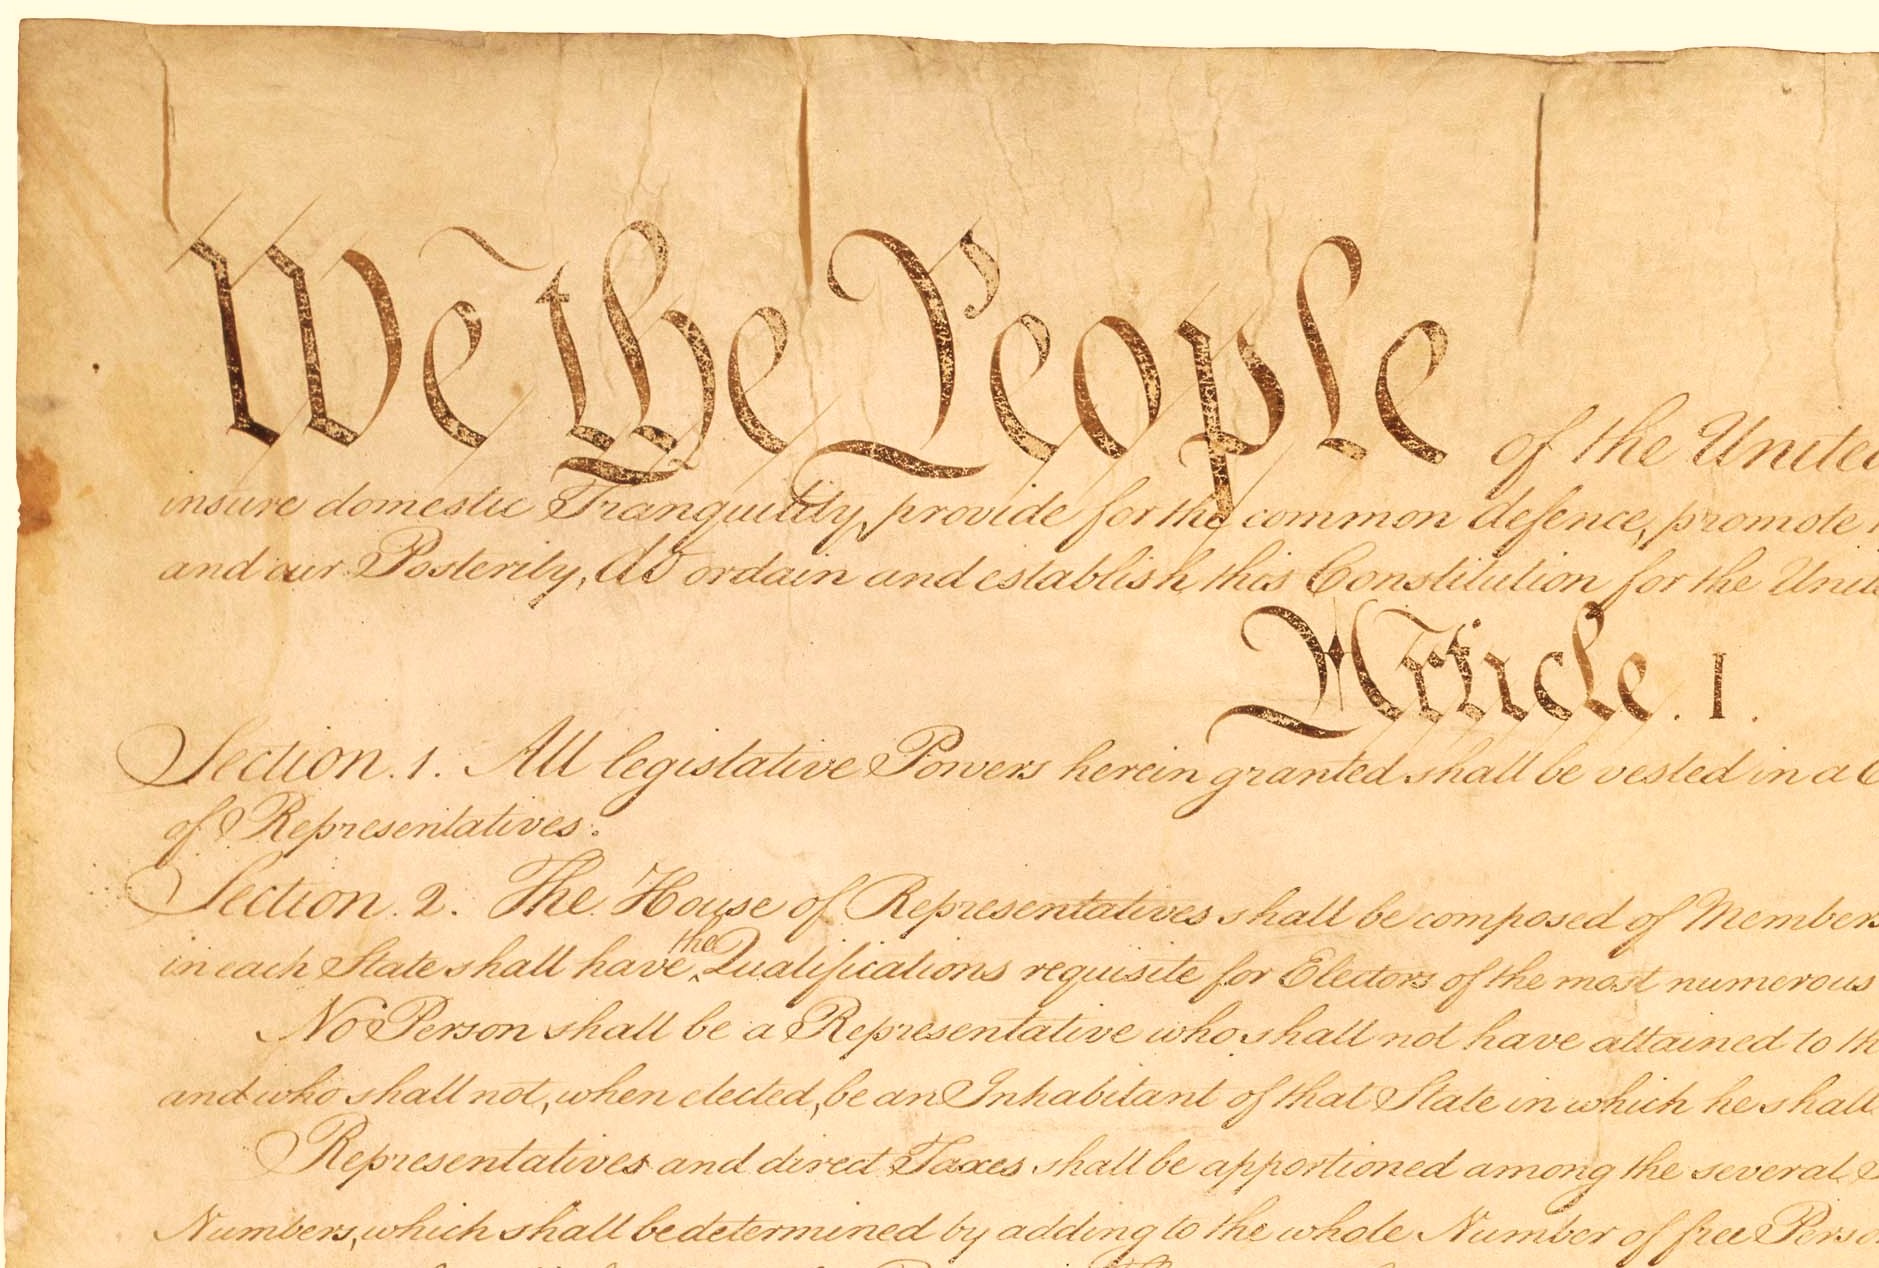 We the People of the United
insure domestic Tranquility, provide for the common defence, promote
and our Posterity, do ordain and establish this Constitution for the Unit
Article. I.
Section. 1. All legislative Powers herein granted shall be vested in a C
of Representatives.
Section. 2. The House of Representatives shall be composed of Members
in each State shall have the Qualifications requisite for Electors of the most numerous
No Person shall be a Representative who shall not have attained to th
and who shall not, when elected, be an Inhabitant of that State in which he shall
Representatives and direct Taxes shall be apportioned among the several S
Numbers, which shall be determined by adding to the whole Number of free Perso